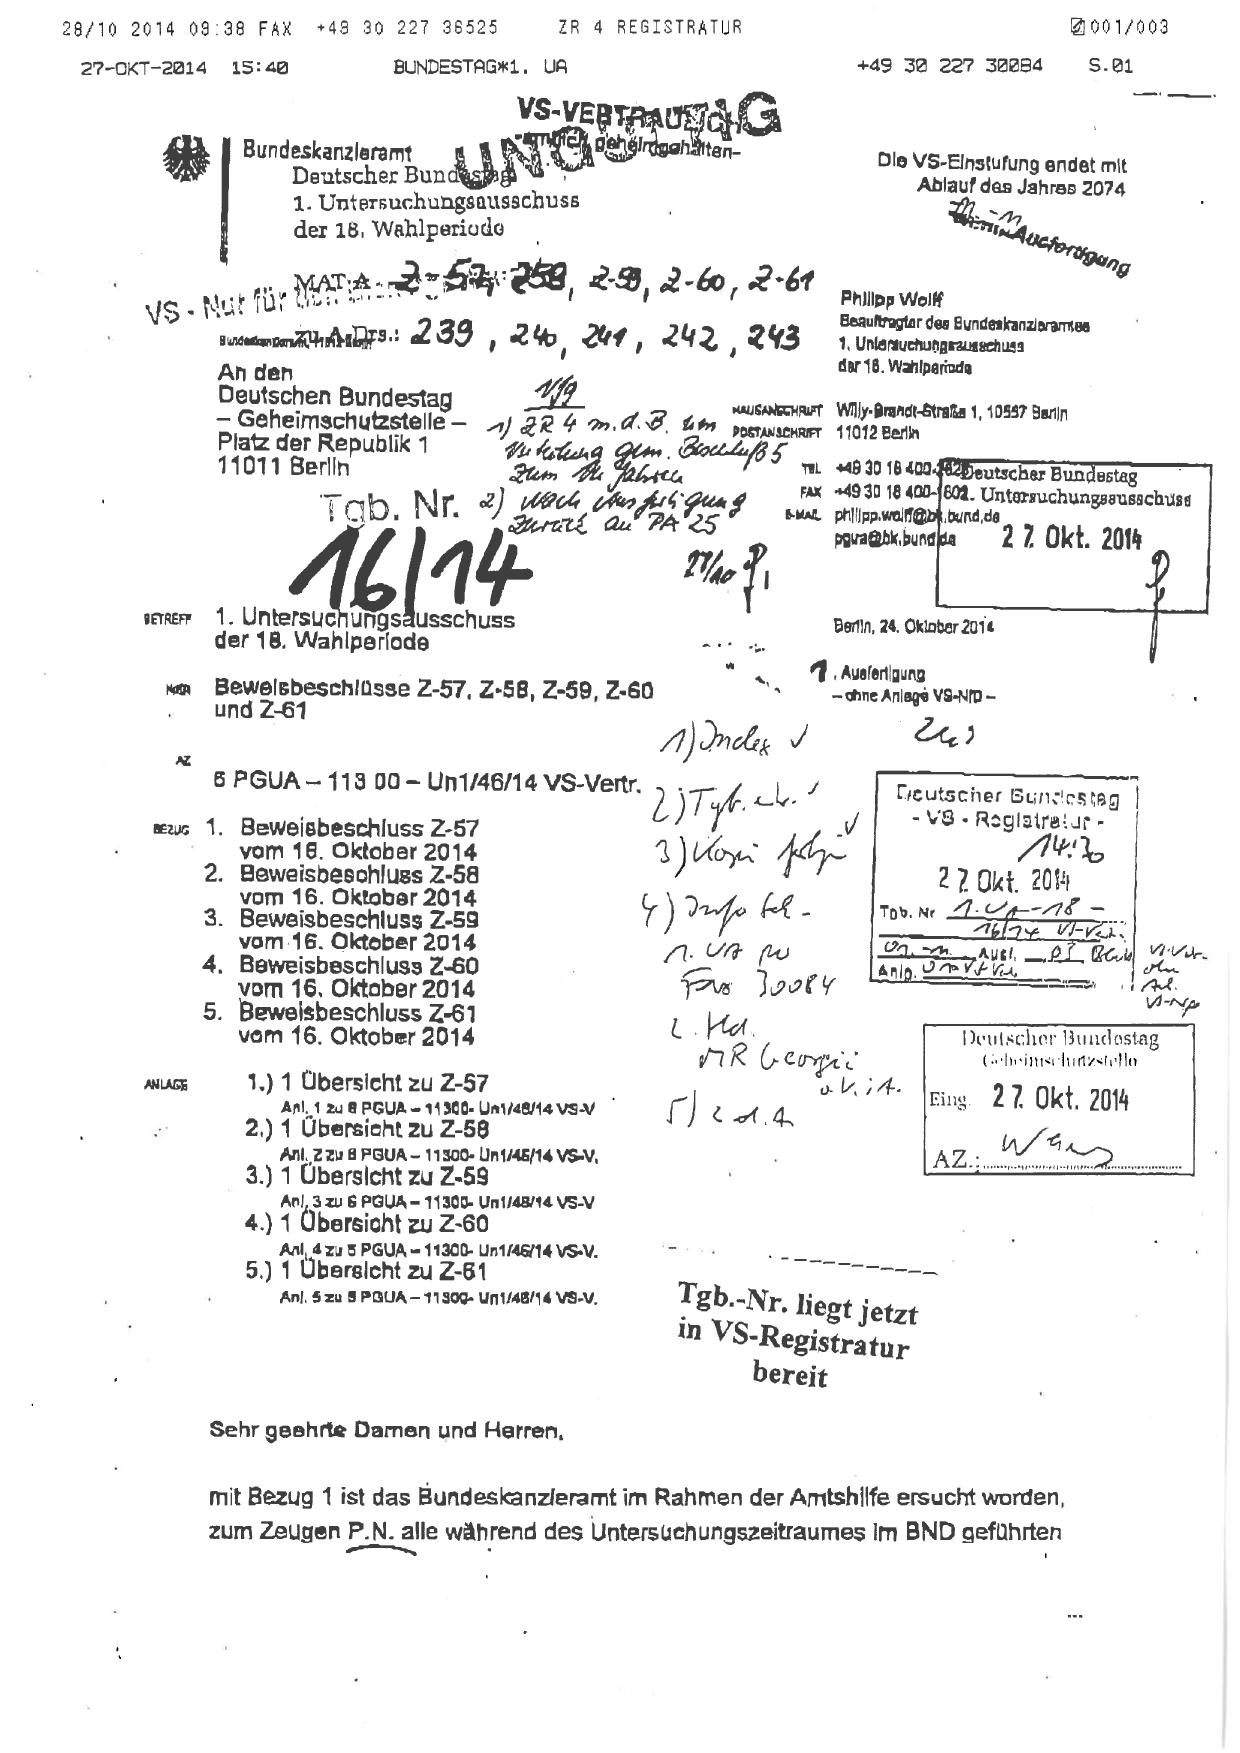 28/10 2014 09:38 FAX +49 30 227 36525 ZR 4 REGISTRATUR 001/003
27-OKT-2014 15:40 BUNDESTAG*1. UA +49 30 227 30084 S.01
VS-VERTRAULICH
-amtlich geheimgehalten-
Bundeskanzleramt
Deutscher Bundestag
1. Untersuchungsausschuss
der 18. Wahlperiode
Die VS-Einstufung endet mit
Ablauf des Jahres 2074
Ausfertigung
MAT A Z-57, Z-58, Z-59, Z-60, Z-61
VS - Nur für den
zu A-Drs.: 239, 240, 241, 242, 243
Philipp Wolff
Beauftragter des Bundeskanzleramtes
1. Untersuchungsausschuss
der 18. Wahlperiode
An den
Deutschen Bundestag
– Geheimschutzstelle –
Platz der Republik 1
11011 Berlin
Vfg
1) ZR 4 m.d.B. um
Verteilung gem. Beschluß 5
zum Verfahren
2) nach Ausfertigung
zurück an PA 25
27/10
HAUSANSCHRIFT Willy-Brandt-Straße 1, 10557 Berlin
POSTANSCHRIFT 11012 Berlin
TEL +49 30 18 400-
FAX +49 30 18 400-
E-MAIL philipp.wolff@bk.bund.de
pgua@bk.bund.de
Deutscher Bundestag
1. Untersuchungsausschuss
27. Okt. 2014
Tgb. Nr.
16/14
BETREFF 1. Untersuchungsausschuss
der 18. Wahlperiode
Berlin, 24. Oktober 2014
1. Ausfertigung
– ohne Anlage VS-NfD –
HIER Beweisbeschlüsse Z-57, Z-58, Z-59, Z-60
und Z-61
AZ 6 PGUA – 113 00 – Un1/46/14 VS-Vertr.
BEZUG 1. Beweisbeschluss Z-57
vom 16. Oktober 2014
2. Beweisbeschluss Z-58
vom 16. Oktober 2014
3. Beweisbeschluss Z-59
vom 16. Oktober 2014
4. Beweisbeschluss Z-60
vom 16. Oktober 2014
5. Beweisbeschluss Z-61
vom 16. Oktober 2014
1) Index ✓
2) Tgb.
3) Kopie
4) Info
1. UA
Fax 30084
2. Hd.
MR Georgii
5) z.d.A.
Deutscher Bundestag
- VS - Registratur -
14:30
27. Okt. 2014
Tgb. Nr 1. UA -18 -
16/14
Ausf.
Anlg.
Deutscher Bundestag
Geheimschutzstelle
Eing. 27. Okt. 2014
AZ.:
ANLAGE 1.) 1 Übersicht zu Z-57
Anl. 1 zu 6 PGUA – 11300- Un1/46/14 VS-V
2.) 1 Übersicht zu Z-58
Anl. 2 zu 6 PGUA – 11300- Un1/46/14 VS-V.
3.) 1 Übersicht zu Z-59
Anl. 3 zu 6 PGUA – 11300- Un1/46/14 VS-V
4.) 1 Übersicht zu Z-60
Anl. 4 zu 6 PGUA – 11300- Un1/46/14 VS-V.
5.) 1 Übersicht zu Z-61
Anl. 5 zu 6 PGUA – 11300- Un1/46/14 VS-V.
Tgb.-Nr. liegt jetzt
in VS-Registratur
bereit
Sehr geehrte Damen und Herren,
mit Bezug 1 ist das Bundeskanzleramt im Rahmen der Amtshilfe ersucht worden,
zum Zeugen P.N. alle während des Untersuchungszeitraumes im BND geführten
...